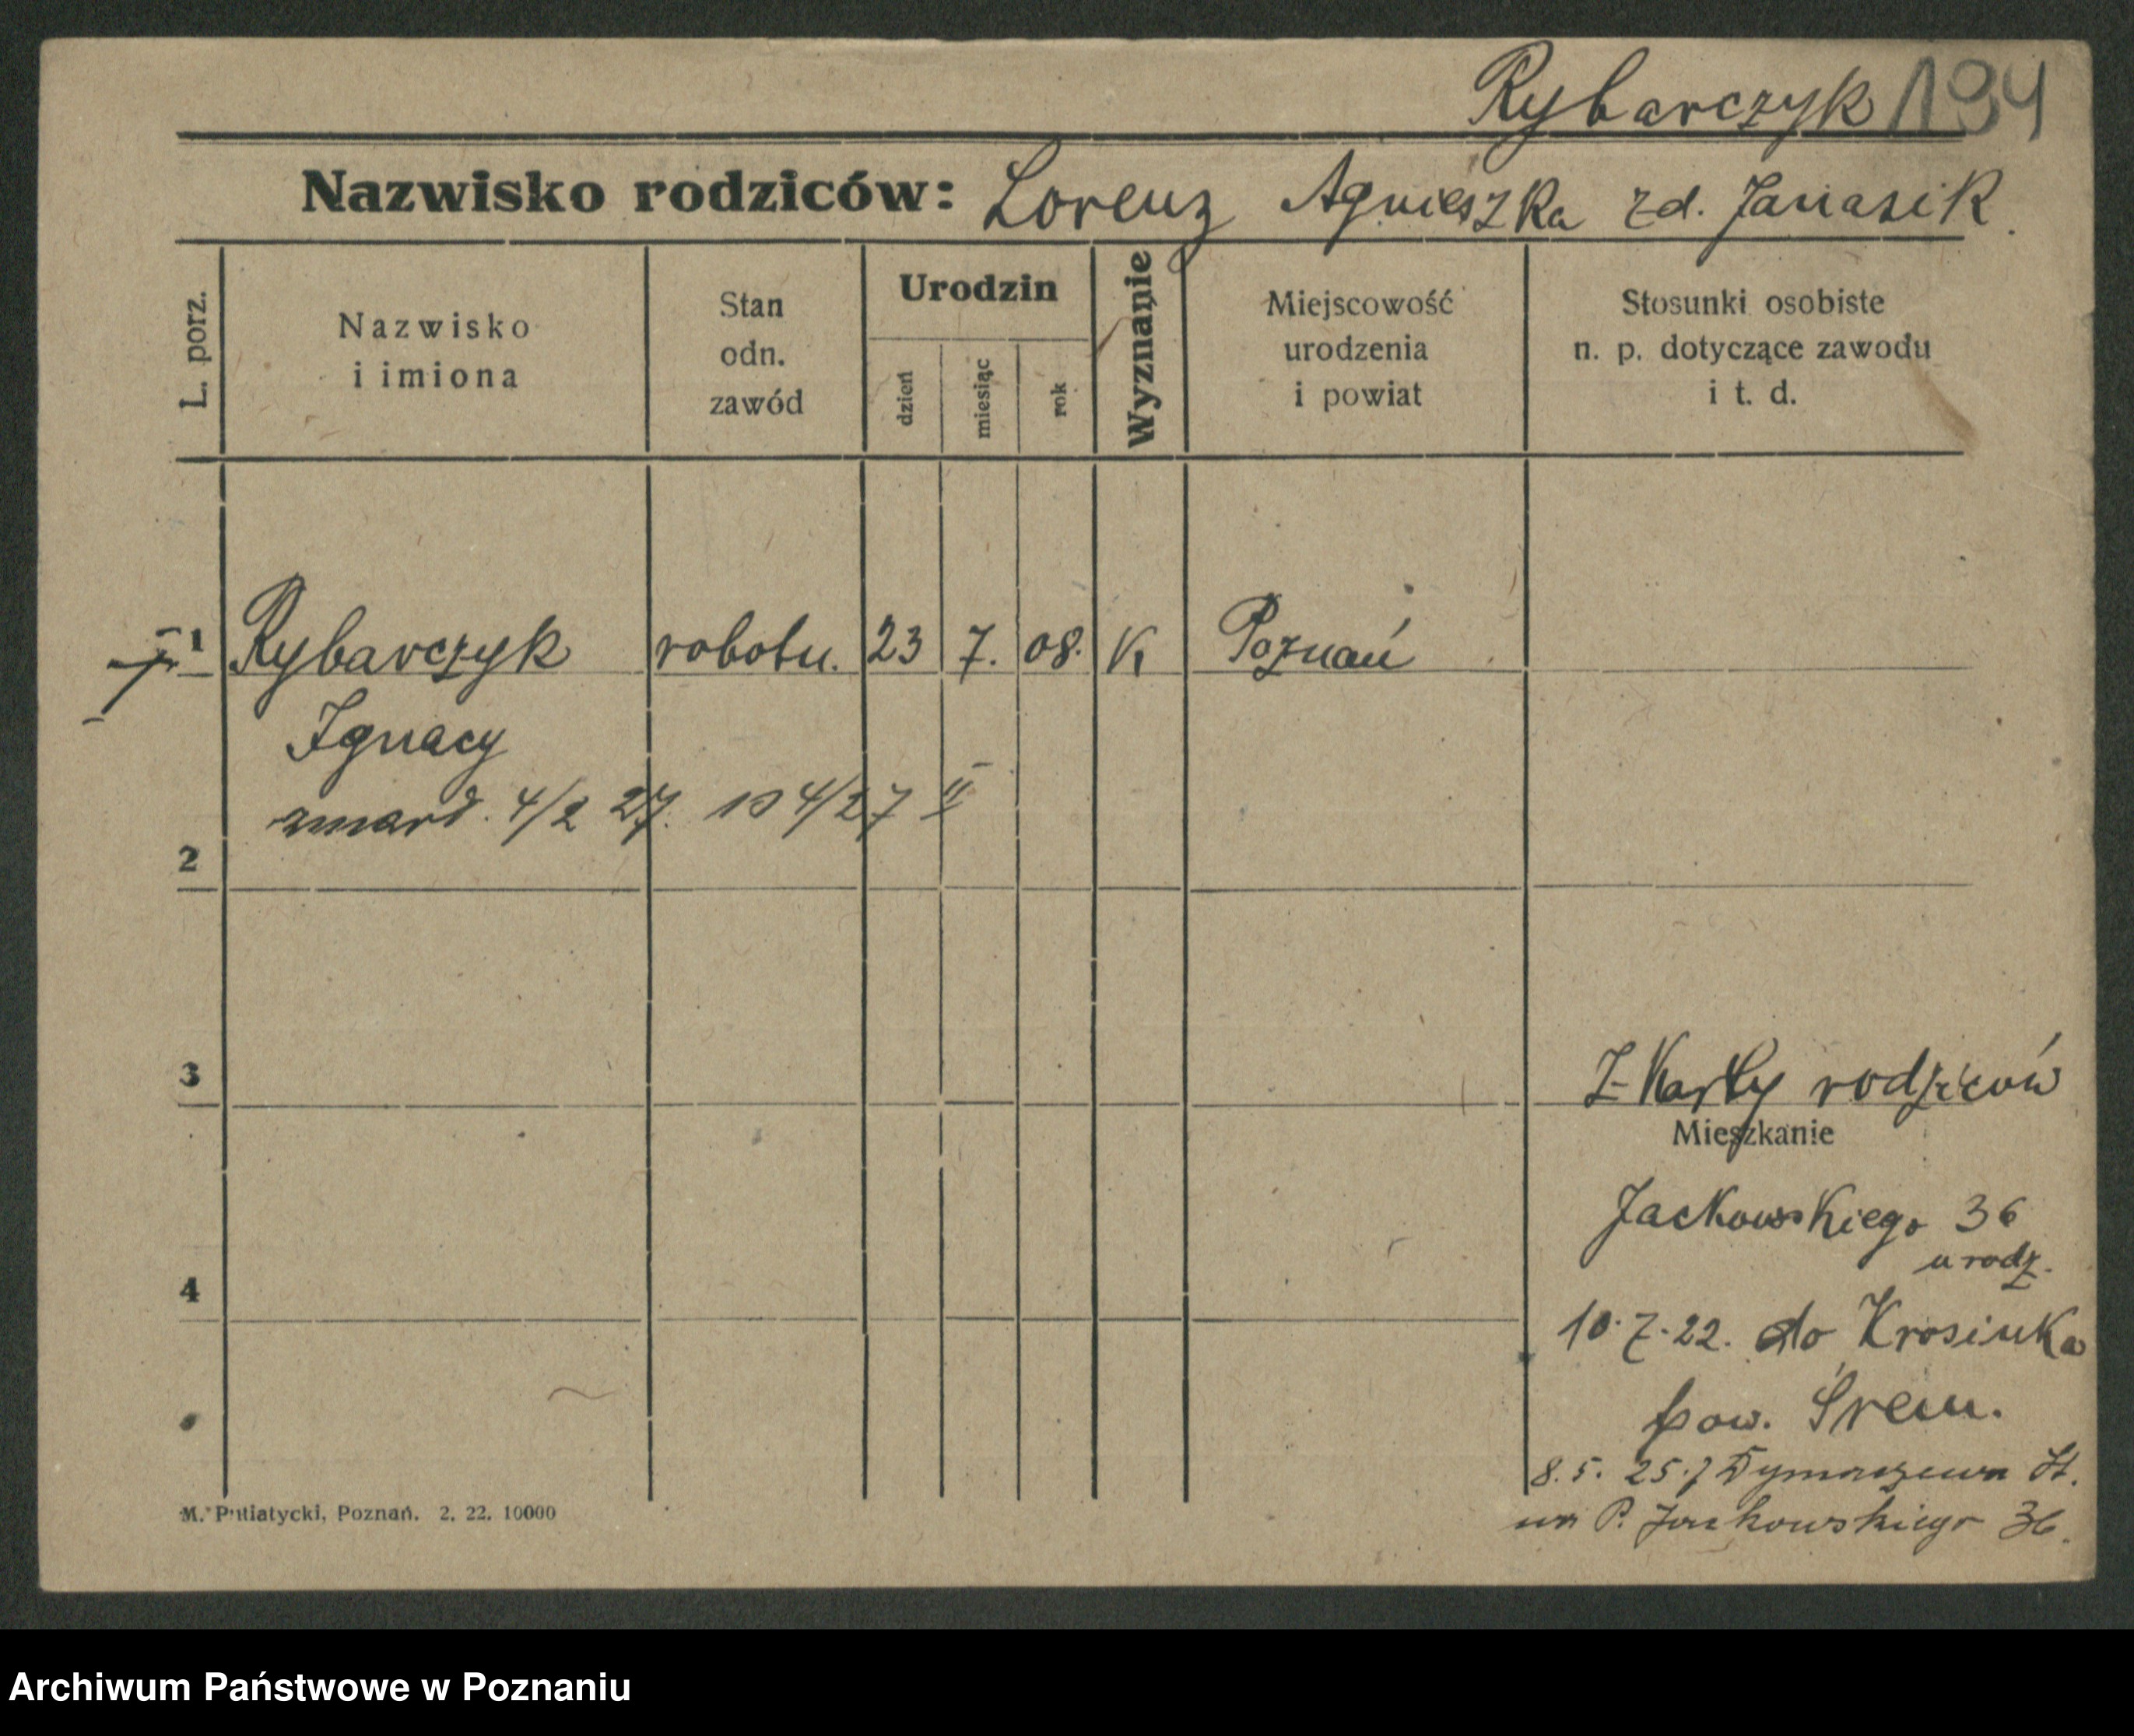 Rybarczyk 194
Nazwisko rodziców: Lorenz Agnieszka zd. Janasik.
L. porz.
Nazwisko
i imiona
Stan
odn.
zawód
Urodzin
dzień
miesiąc
rok
Wyznanie
Miejscowość
urodzenia
i powiat
Stosunki osobiste
n. p. dotyczące zawodu
i t. d.
1 Rybarczyk robotn. 23 7. 08. K Poznań
Ignacy
zmarł. 4/2 27. 4/27 II
2
3
Z Karty rodziców
Mieszkanie
Jackowskiego 36
urodz.
4
10.7.22. do Krosinka
pow. Śrem.
8.5. 25. z Tymaszewa St.
na P. Jackowskiego 36.
M. Putiatycki, Poznań. 2. 22. 10000
Archiwum Państwowe w Poznaniu